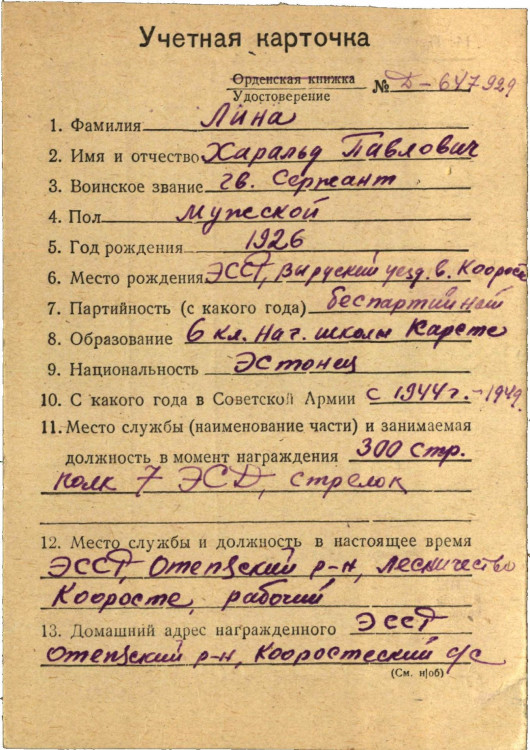 Учетная карточка
Орденская книжка
Удостоверение № Д-647929
1. Фамилия Лина
2. Имя и отчество Харальд Павлович
3. Воинское звание гв. Сержант
4. Пол Мужской
5. Год рождения 1926
6. Место рождения ЭССР, Выруский уезд, в. Коорасте
7. Партийность (с какого года) беспартийный
8. Образование 6 кл. нач. школы Карсте
9. Национальность Эстонец
10. С какого года в Советской Армии с 1944 г. - 1949.
11. Место службы (наименование части) и занимаемая
должность в момент награждения 300 стр.
полк 7 ЭСД, стрелок
12. Место службы и должность в настоящее время
ЭССР, Отепэский р-н, Лесничество
Коорасте, рабочий
13. Домашний адрес награжденного ЭССР
Отепэский р-н, Коораστеский с/с
(См. н/об)